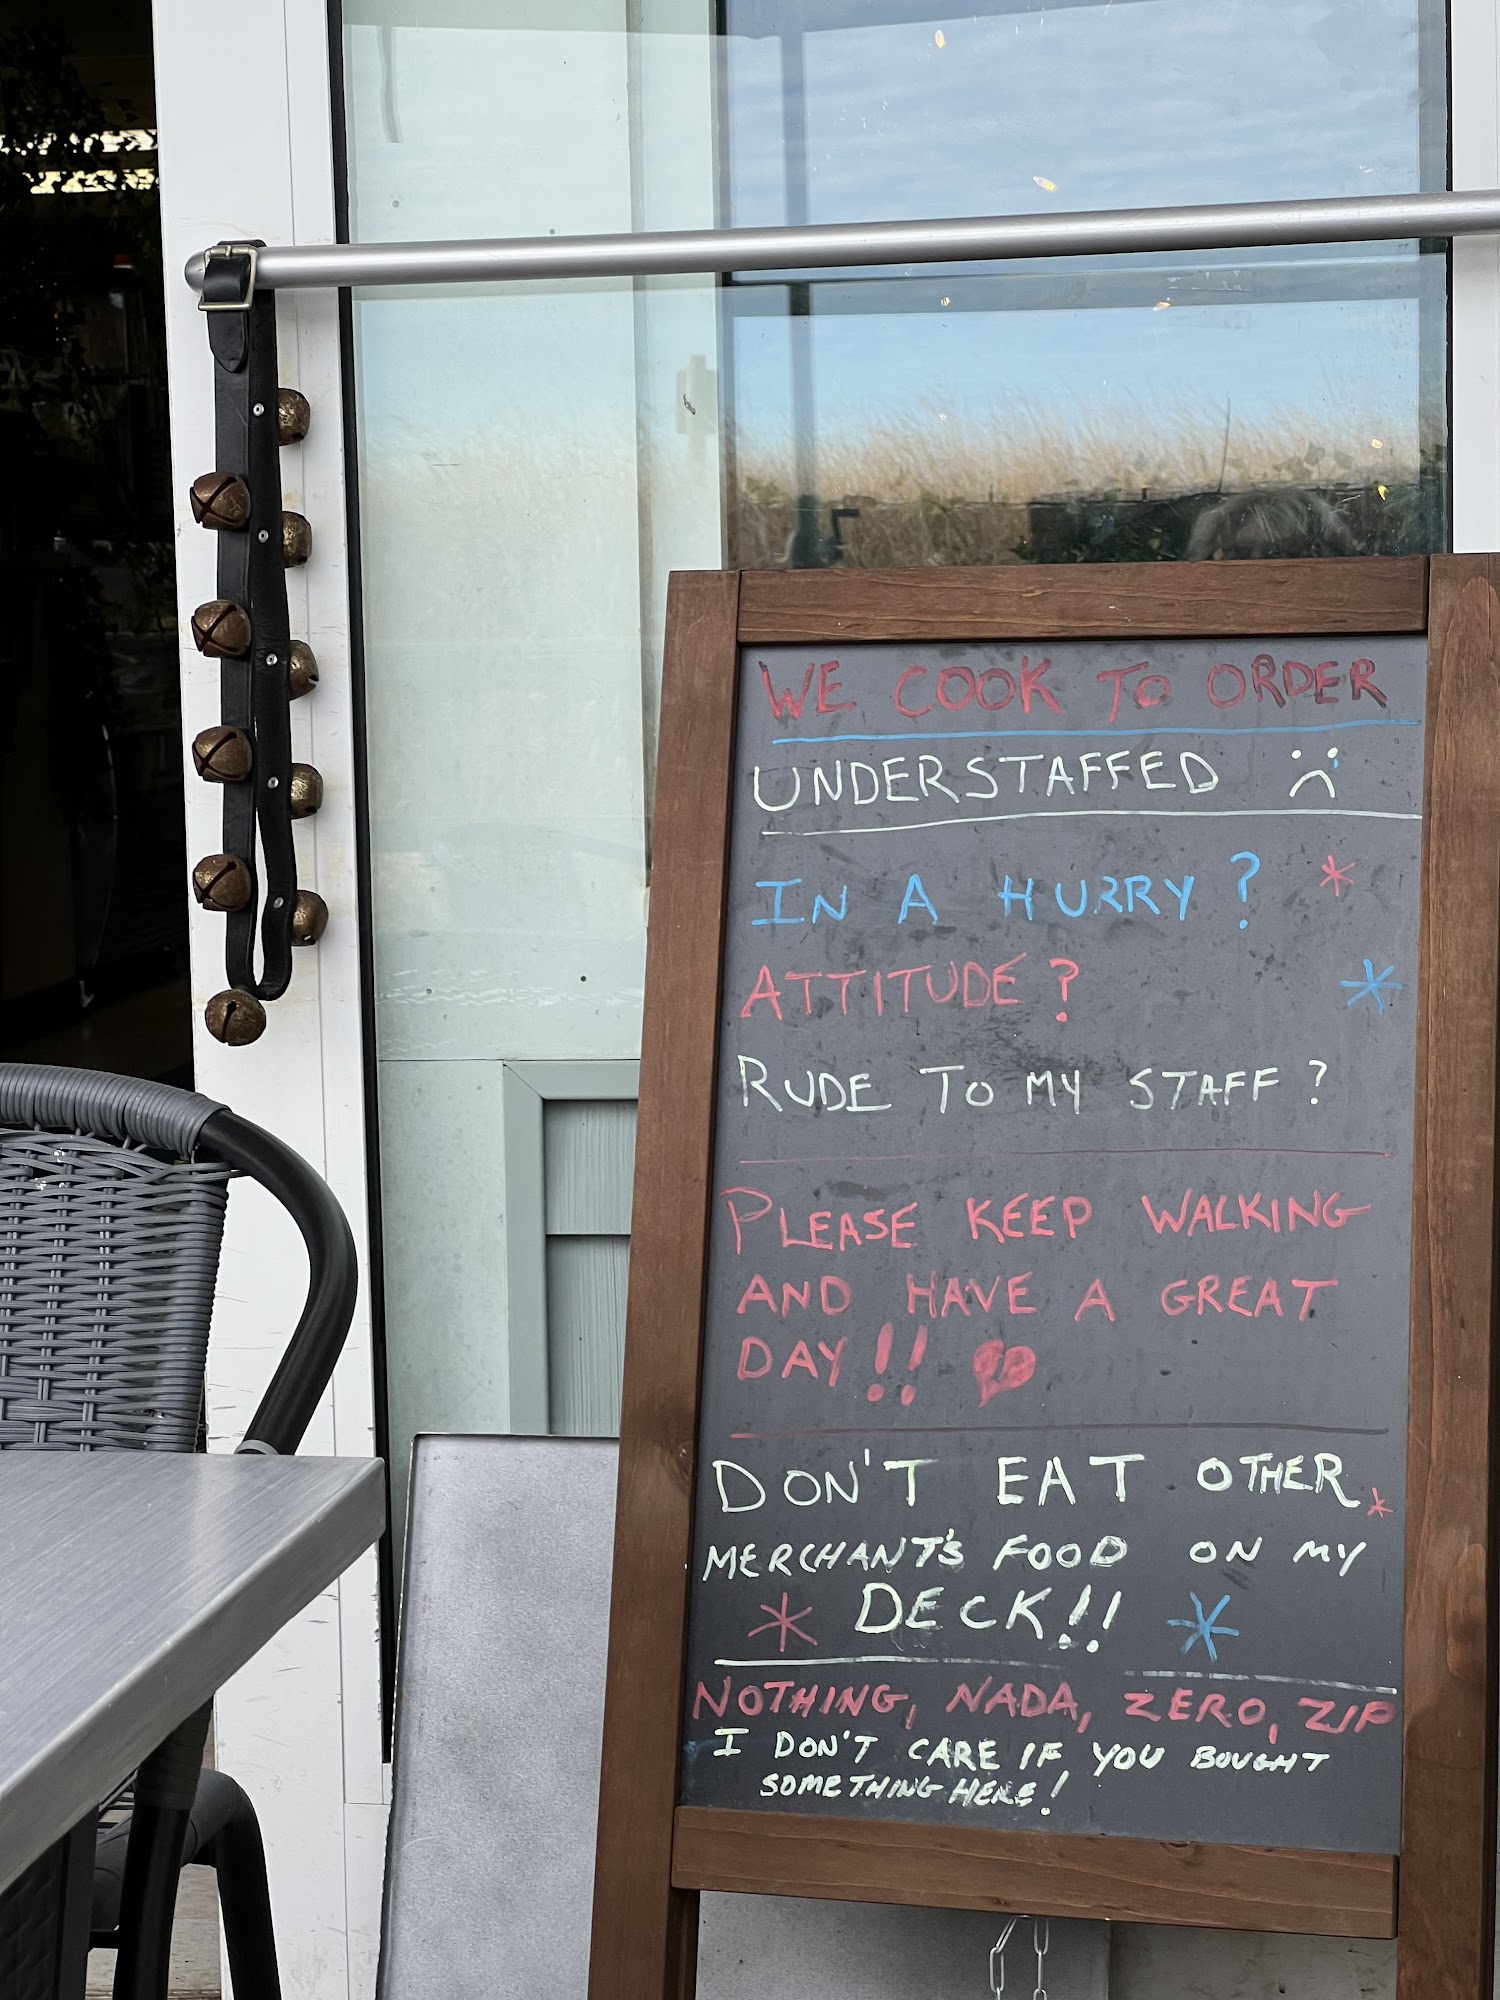 WE COOK TO ORDER
UNDERSTAFFED
IN A HURRY?
ATTITUDE?
RUDE TO MY STAFF?
PLEASE KEEP WALKING
AND HAVE A GREAT
DAY!!
DON'T EAT OTHER
MERCHANT'S FOOD ON MY
DECK!!
NOTHING, NADA, ZERO, ZIP
I DON'T CARE IF YOU BOUGHT
SOMETHING HERE!